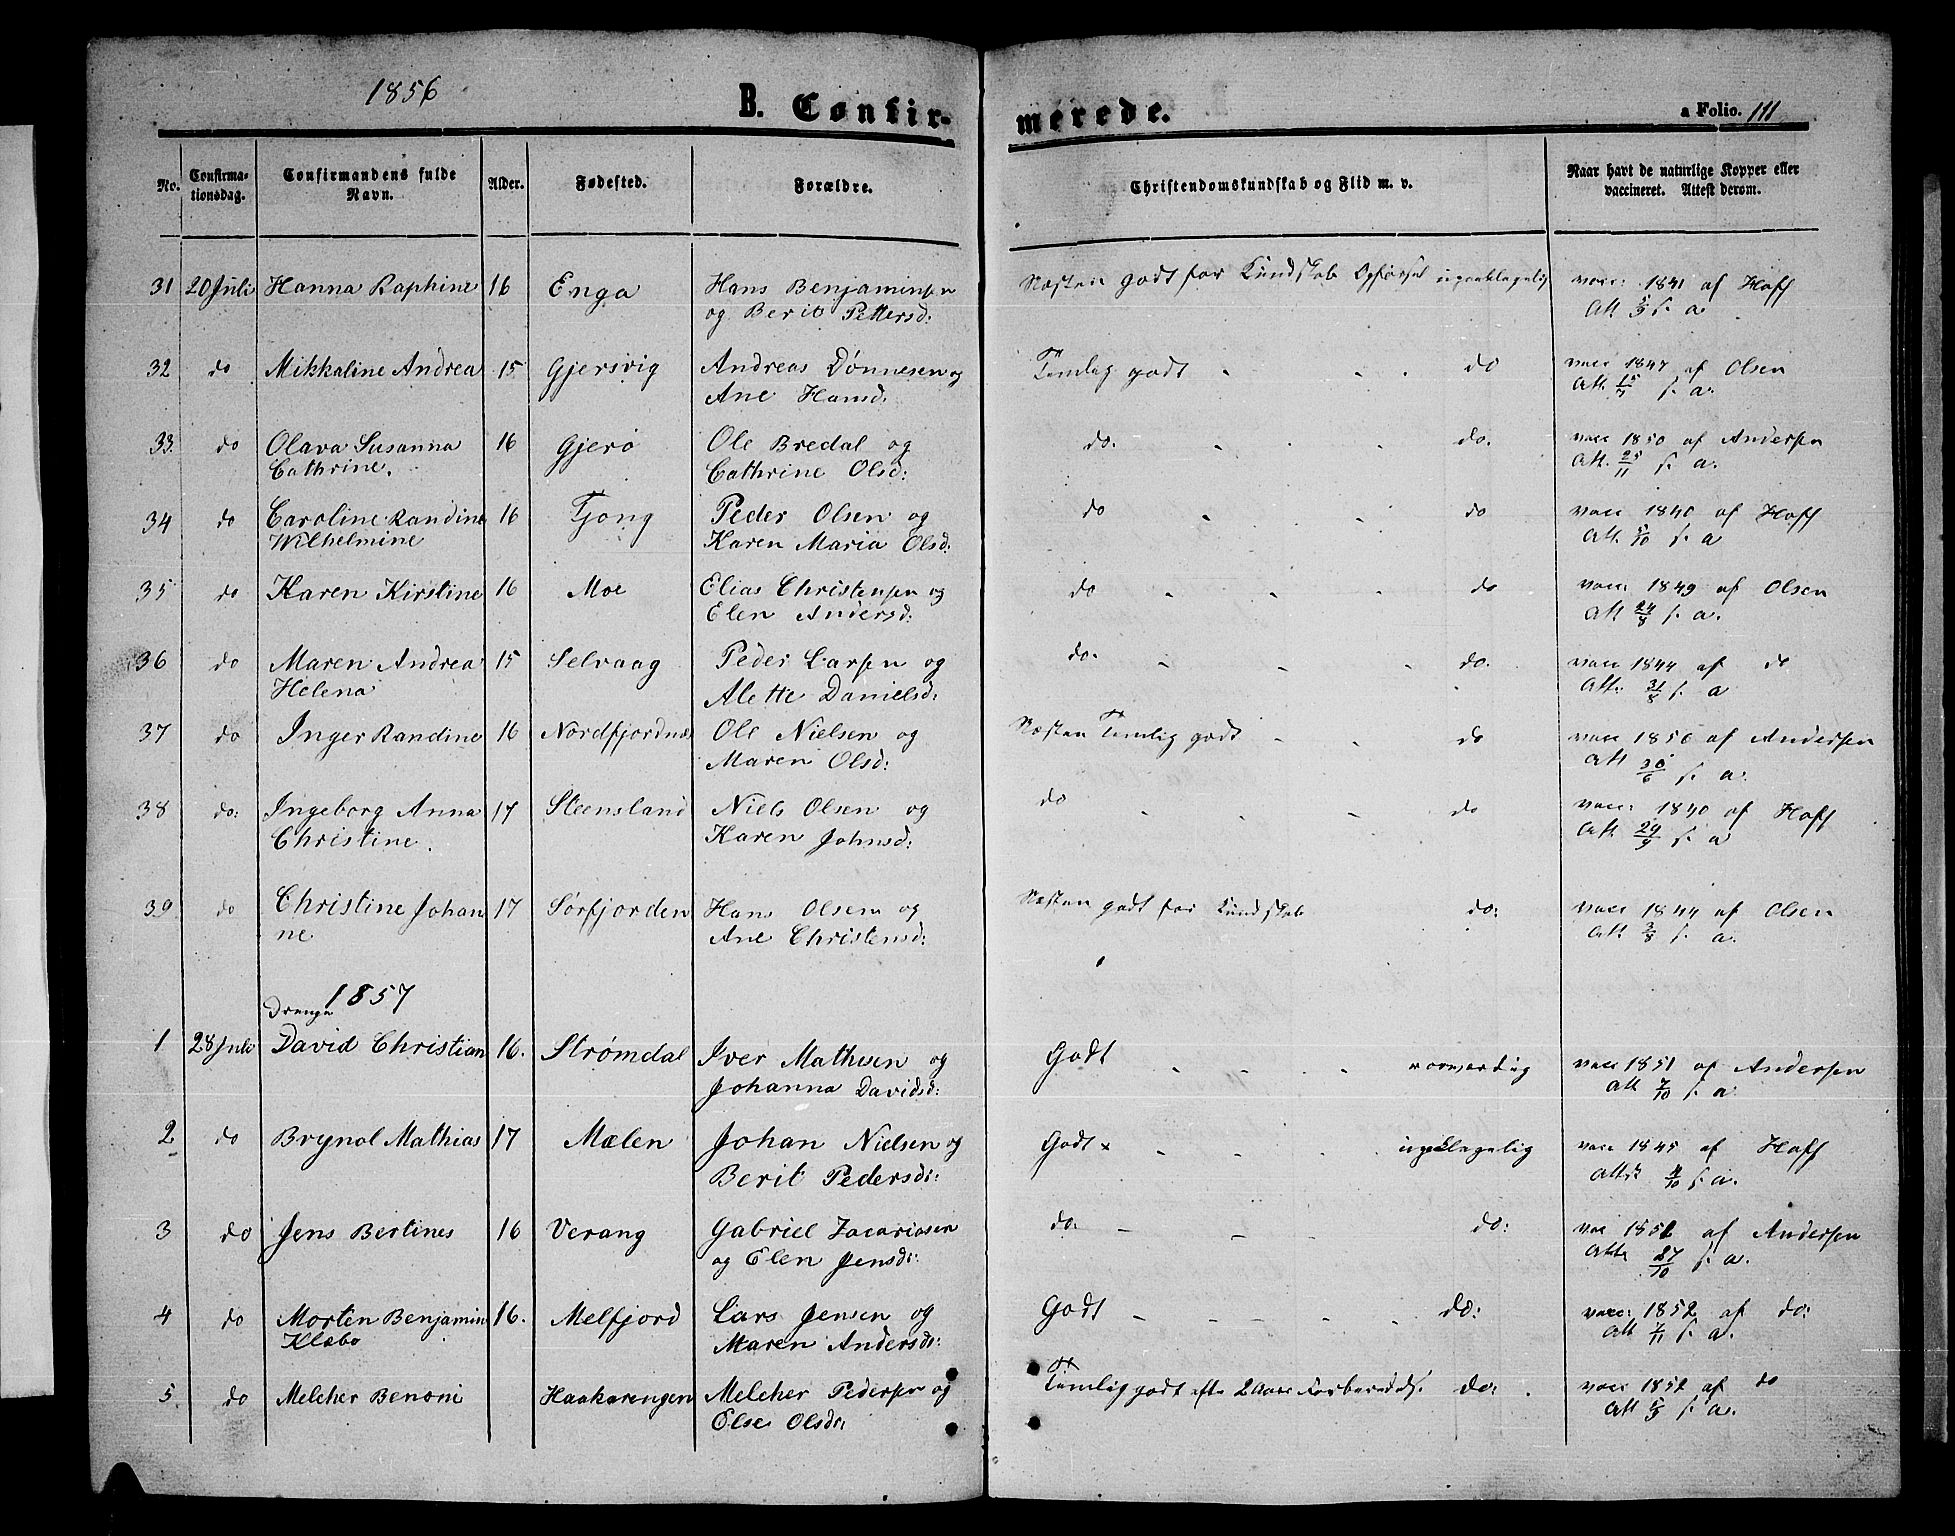 1856
B. Confir-
merede.
a Folio. 111
No. Confirma-tionsdag. Confirmandens fulde Navn. Alder. Fødested. Forældre. Christendomskundskab og Flid m. v. Naar havt de naturlige Kopper eller vaccineret. Attest derom.
31 20 Juli Hanna Raphine 16 Enga Hans Benjaminsen Næsten godt for Kundskab Opførsel upaaklagelig vacc: 1841 af Hoff
og Berit Pettersd: Att 5/9 s. a
32 do Mikkaline Andrea 15 Gjersvig Andreas Dønnesen og Temlig godt do vacc 1847 af Olsen
Ane Hansd: Att. s. a.
33. do Olava Susanna 16 Gjerø Ole Bredal og do. do. vacc 1850 af Andersen
Cathrine. Cathrine Olsd: Att. 25/11 s. a.
34 do Caroline Randine 16 Tjong Peder Olsen og do do vacc 1840 af Hoff
Wilhelmine Karen Maria Olsd: Att. 5/10 s. a
35 do Karen Kirstine 16 Moe Elias Christensen og do do vacc: 1849 af Olsen
Elen Andersd: Att 24/8 s. a.
36 do Maren Andrea 15 Selvaag Peder Larsen og do. do. vacc 1844 af do
Helena Alette Danielsd: Att. 31/8 s. a
37 do Inger Randine 16 Nordfjordnæs Ole Nielsen og Næsten Temlig godt do vacc 1850 af Andersen
Maren Olsd: Att s. a.
38 do: Ingeborg Anna 17 Steensland Niels Olsen og do do vacc: 1840 af Hoff
Christine. Karen Johnsd: Att. 29/9 s. a
39 do Christine Johan 17 Sørfjorden Hans Olsen og Næsten godt for Kundskab do: vacc 1844 af Olsen
ne Ane Christensd: Att 3/8 s. a.
1857
Drenge
1 28 Juli David Christian 16. Strømdal Iver Mathisen og Godt vacc 1851 af Andersen
Johanna Davidsd: Att 7/10 s. a
2 do Brynol Mathias 17 Mælen Johan Nielsen og Godt x upaaklagelig vacc 1845 af Hoff
Berit Pedersd: 4/10 s. a.
3 do Jens Bertines 16 Verang Gabriel Zacariasen do. do: vac 1852 af Andersen
og Elen Jensd: Att. 27/10 s. a.
4 do Morten Benjamin 16. Melfjord Lars Jensen og Godt do: vacc: 1852 af do:
Klæbo Maren Andersd: Att 7/11 s. a.
5. do Melcher Benoni Haakarengen Melcher Pedersen og Temlig godt efter 2 Aars Forberedels. do: vacc 1852 af do
Else Olsd: Att 5/9 s. a.